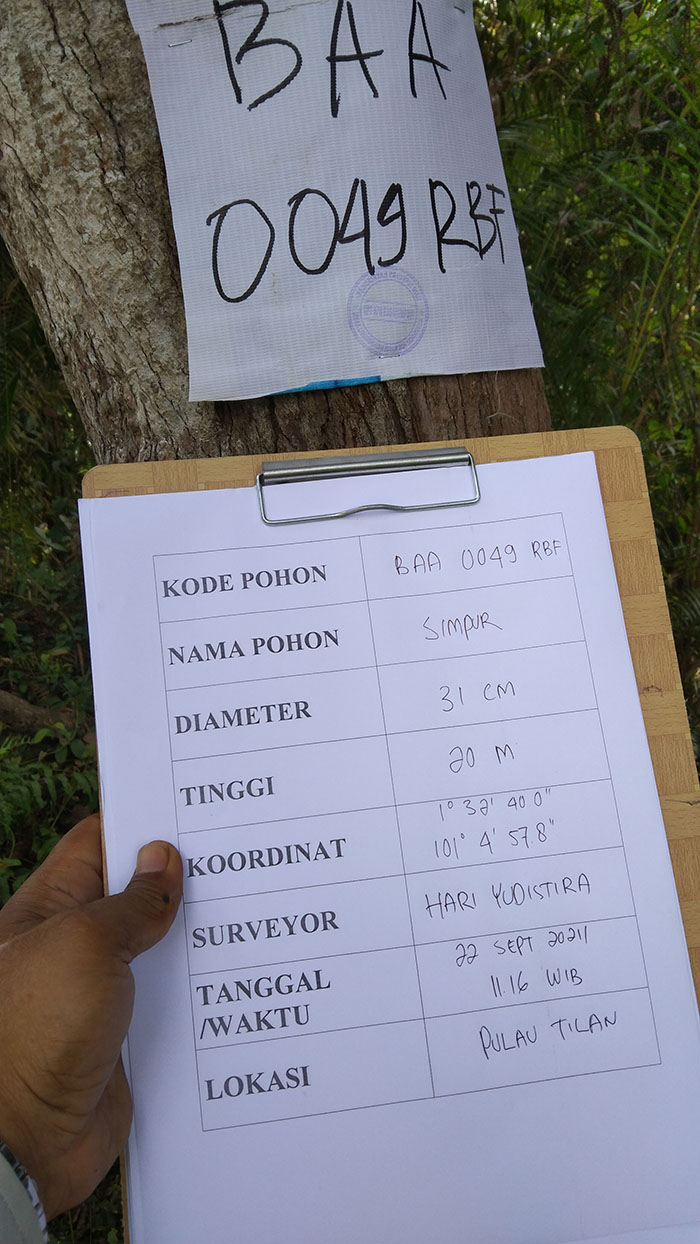 BAA
0049 RBF
KODE POHON BAA 0049 RBF
NAMA POHON SIMPUR
DIAMETER 31 CM
TINGGI 20 M
KOORDINAT 1° 32' 40.0"
101° 4' 57.8"
SURVEYOR HARI YUDISTIRA
TANGGAL 22 SEPT 2021/
/WAKTU 11.16 WIB
LOKASI PULAU TILAN